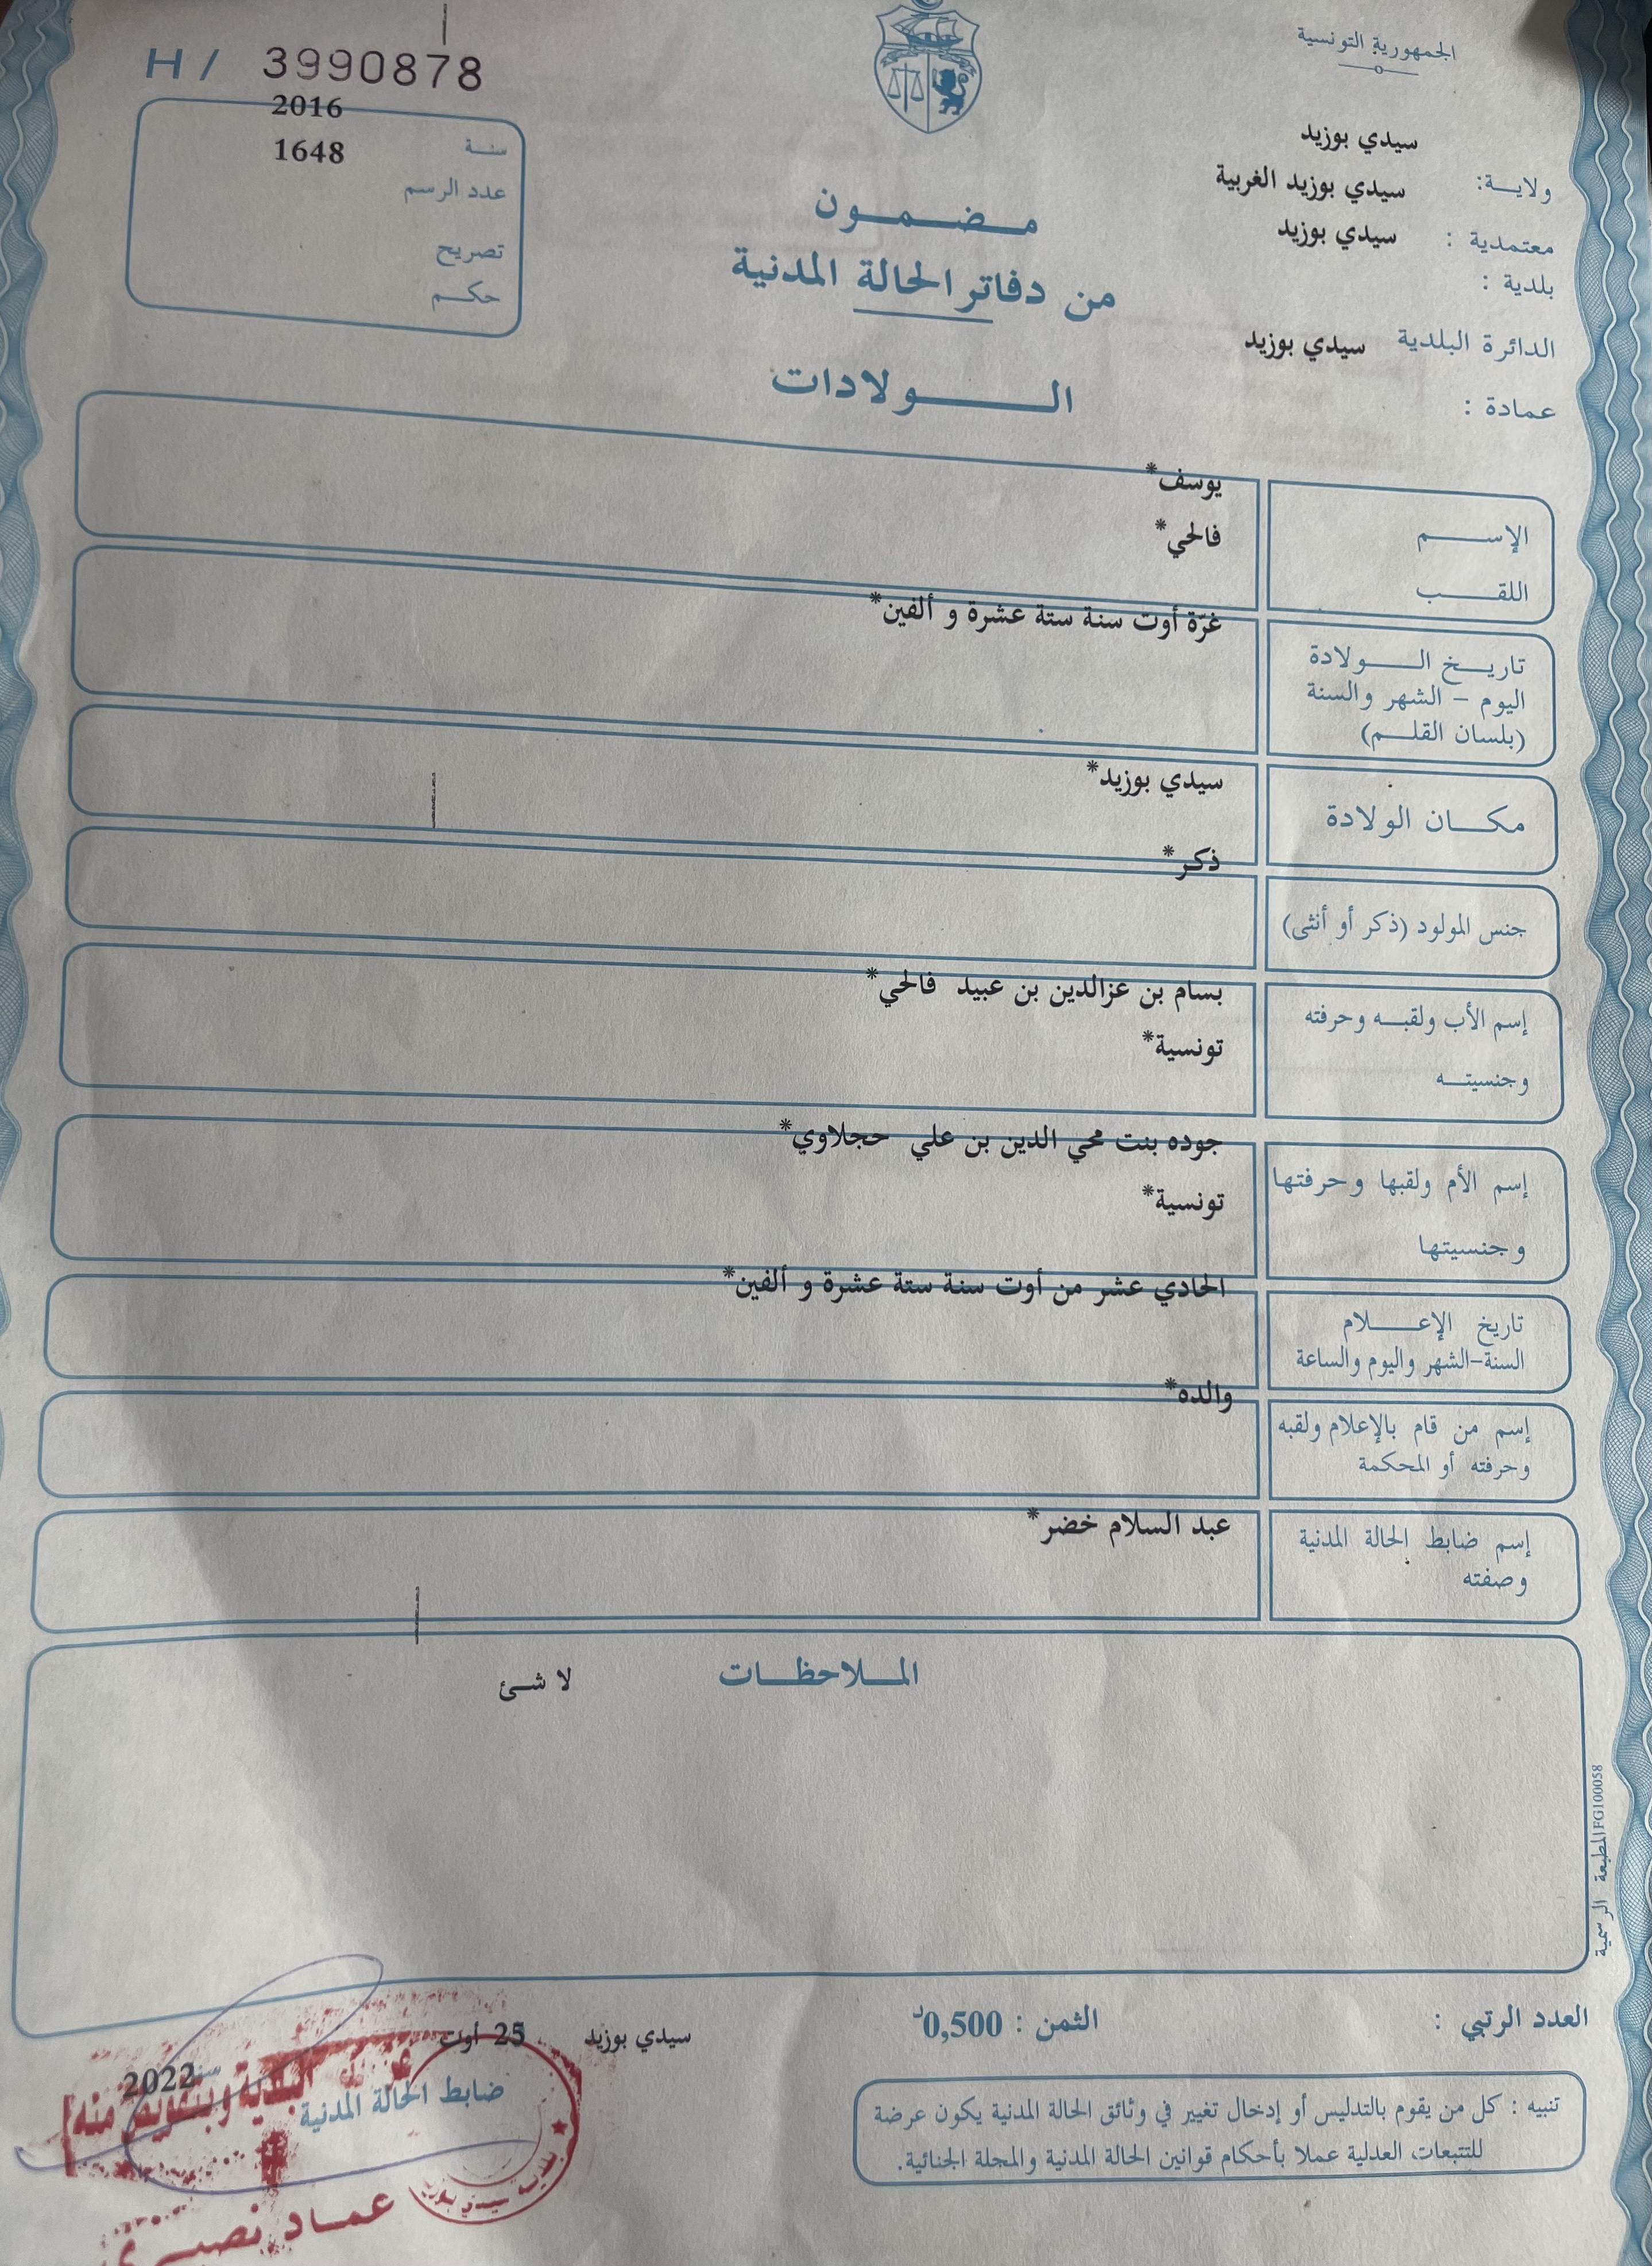 الجمهورية التونسية
H / 3990878
2016
سنة 1648
عدد الرسم
تصريح
حكم
سيدي بوزيد
ولاية: سيدي بوزيد الغربية
معتمدية : سيدي بوزيد
بلدية :
الدائرة البلدية سيدي بوزيد
عمادة :
مضمون
من دفاتر الحالة المدنية
الولادات
يوسف*
الإسم فالحي*
اللقب
غرّة أوت سنة ستة عشرة و ألفين*
تاريخ الولادة
اليوم - الشهر والسنة
(بلسان القلم)
سيدي بوزيد*
مكان الولادة
ذكر*
جنس المولود (ذكر أو أنثى)
بسام بن عزالدين بن عبيد فالحي*
إسم الأب ولقبه وحرفته
تونسية*
وجنسيته
جوده بنت محي الدين بن علي حجلاوي*
إسم الأم ولقبها وحرفتها
تونسية*
وجنسيتها
الحادي عشر من أوت سنة ستة عشرة و ألفين*
تاريخ الإعلام
السنة-الشهر واليوم والساعة
والده*
إسم من قام بالإعلام ولقبه
وحرفته أو المحكمة
عبد السلام خضر*
إسم ضابط الحالة المدنية
وصفته
الملاحظات لا شئ
المطبعة الرسمية FG100058
العدد الرتبي : الثمن : 0,500د
سيدي بوزيد 25 أوت
سنة 2022
ضابط الحالة المدنية
البلدية وبتفويض منه
عماد نصيري
بلدية سيدي بوزيد
تنبيه : كل من يقوم بالتدليس أو إدخال تغيير في وثائق الحالة المدنية يكون عرضة
للتتبعات العدلية عملا بأحكام قوانين الحالة المدنية والمجلة الجنائية.